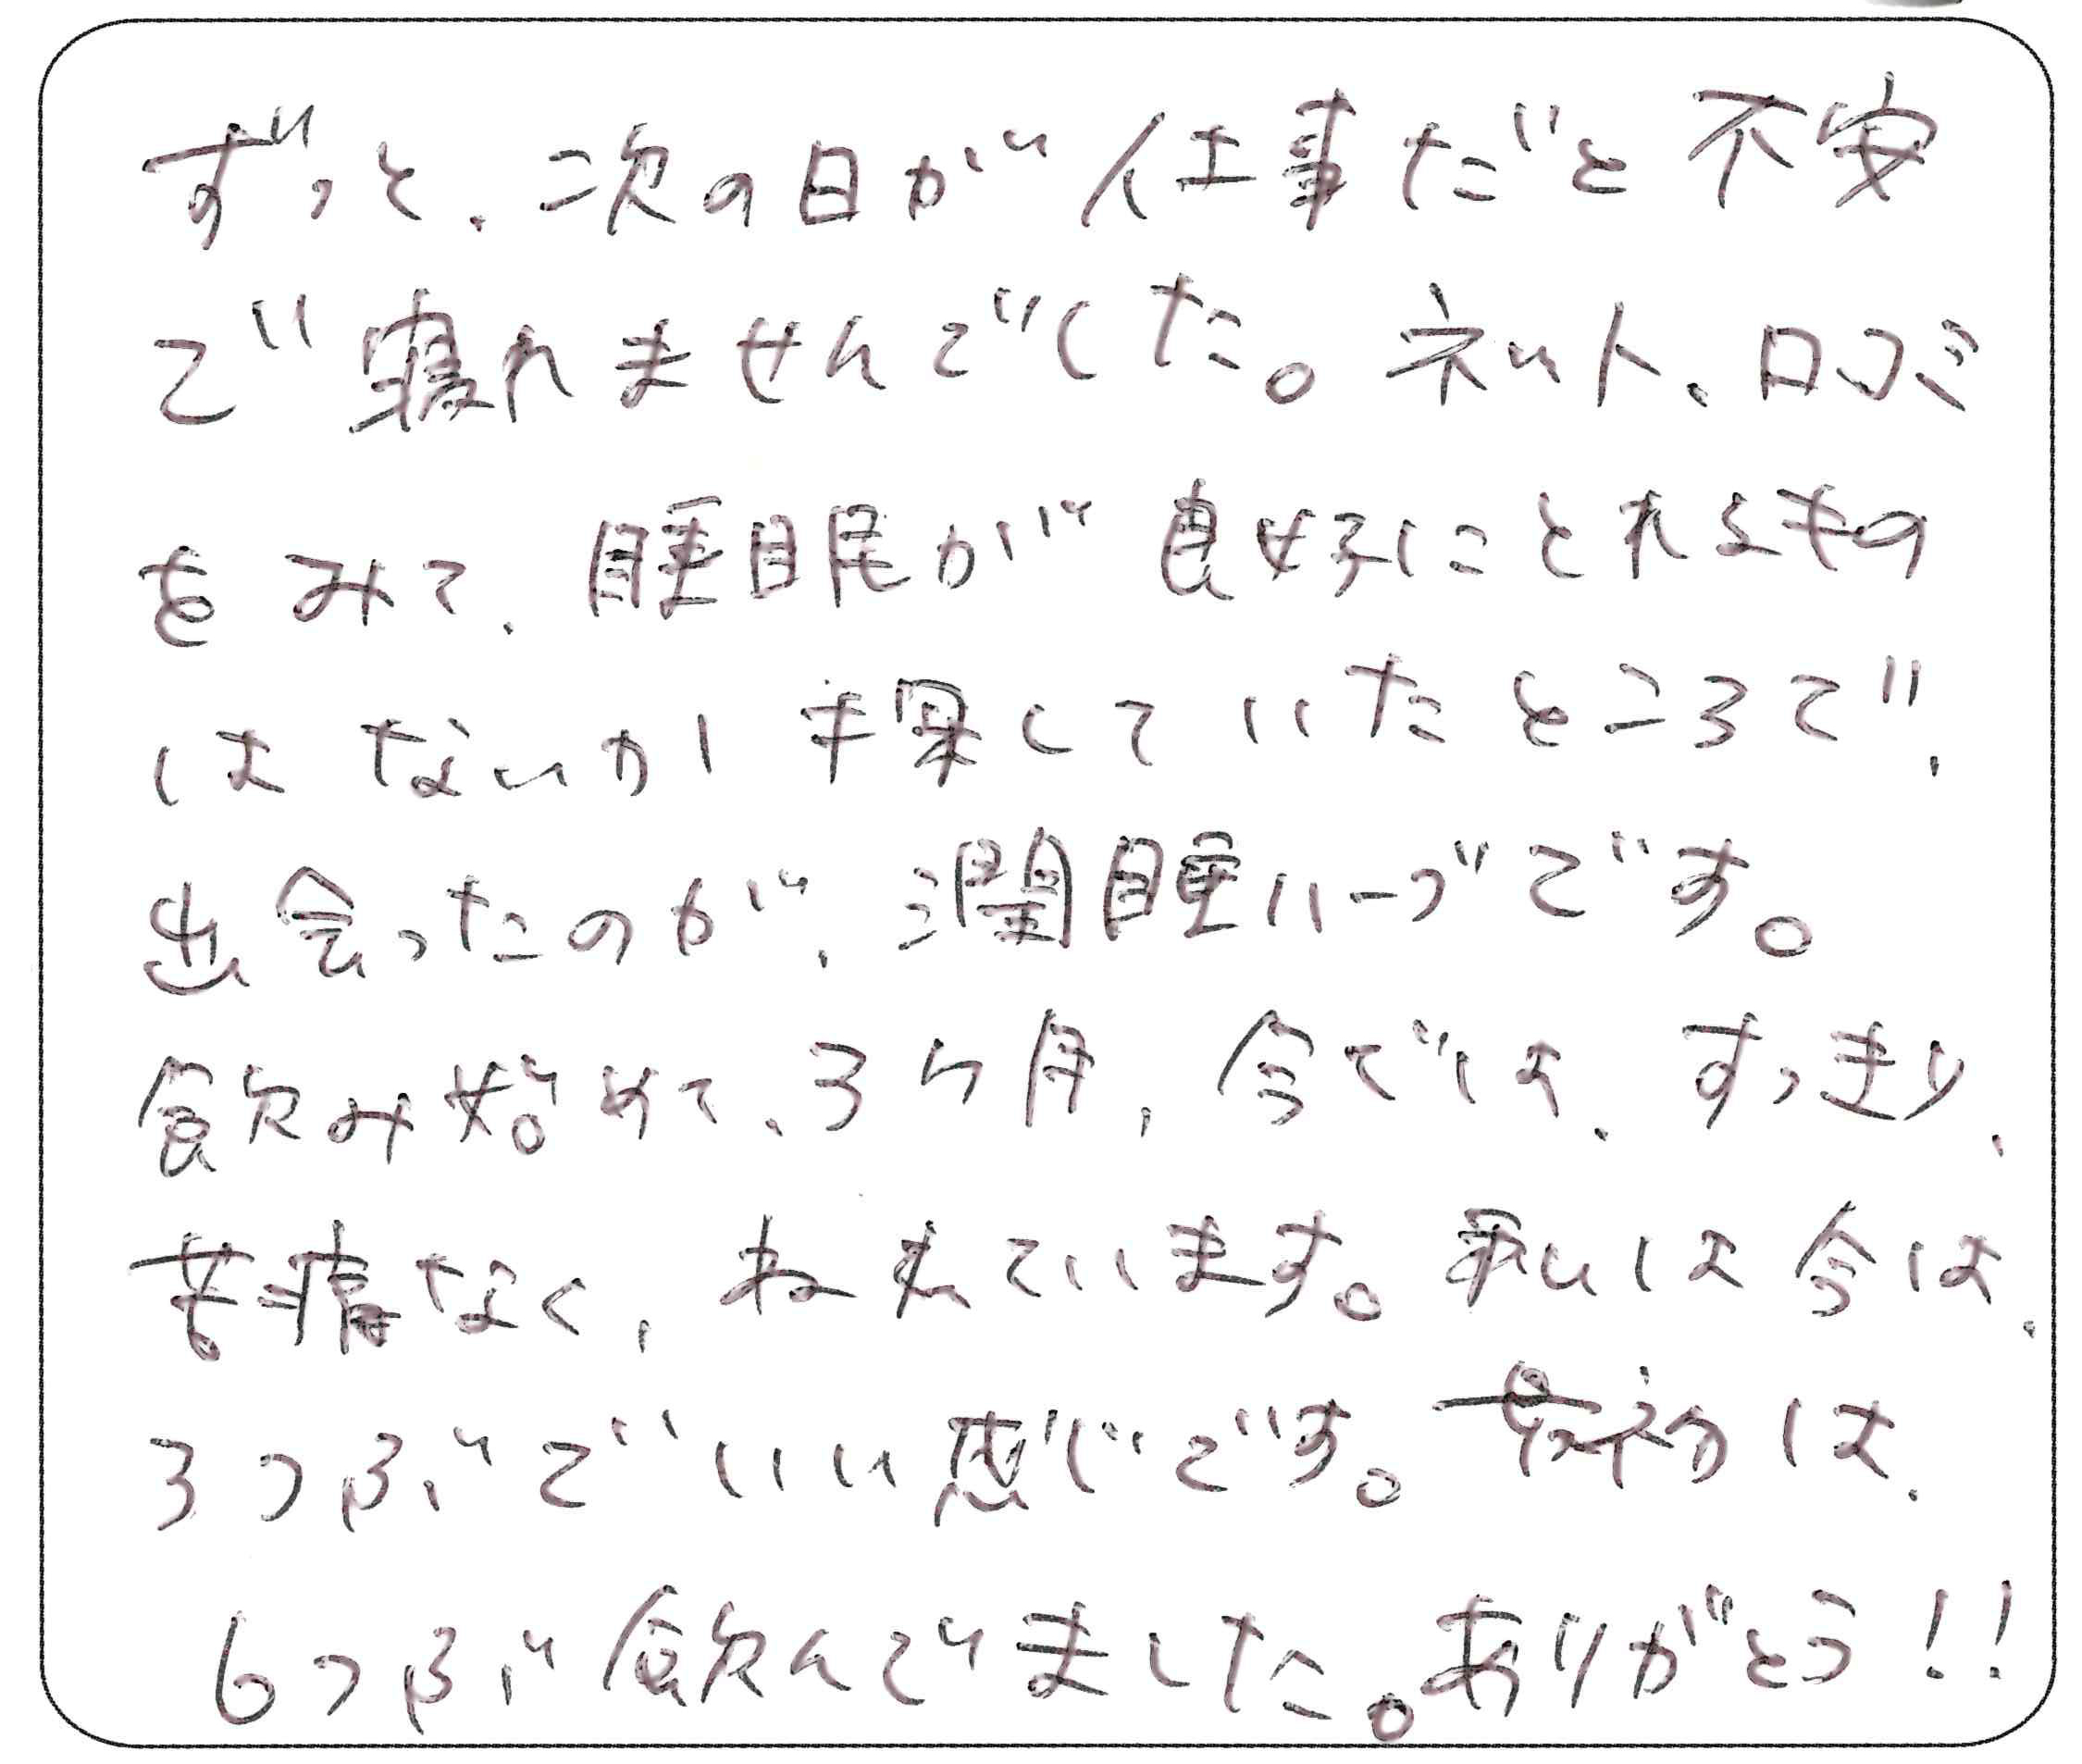 ずっと、次の日が仕事だと不安
で寝れませんでした。ネット、口コミ
をみて、睡眠が良好にとれるもの
はないか探していたところで、
出会ったのが、潤睡ハーブです。
飲み始めて、3ヶ月、今では、すっきり、
苦痛なく、ねれています。私は今は、
3つぶでいい感じです。最初は、
6つぶ飲んでました。ありがとう!!